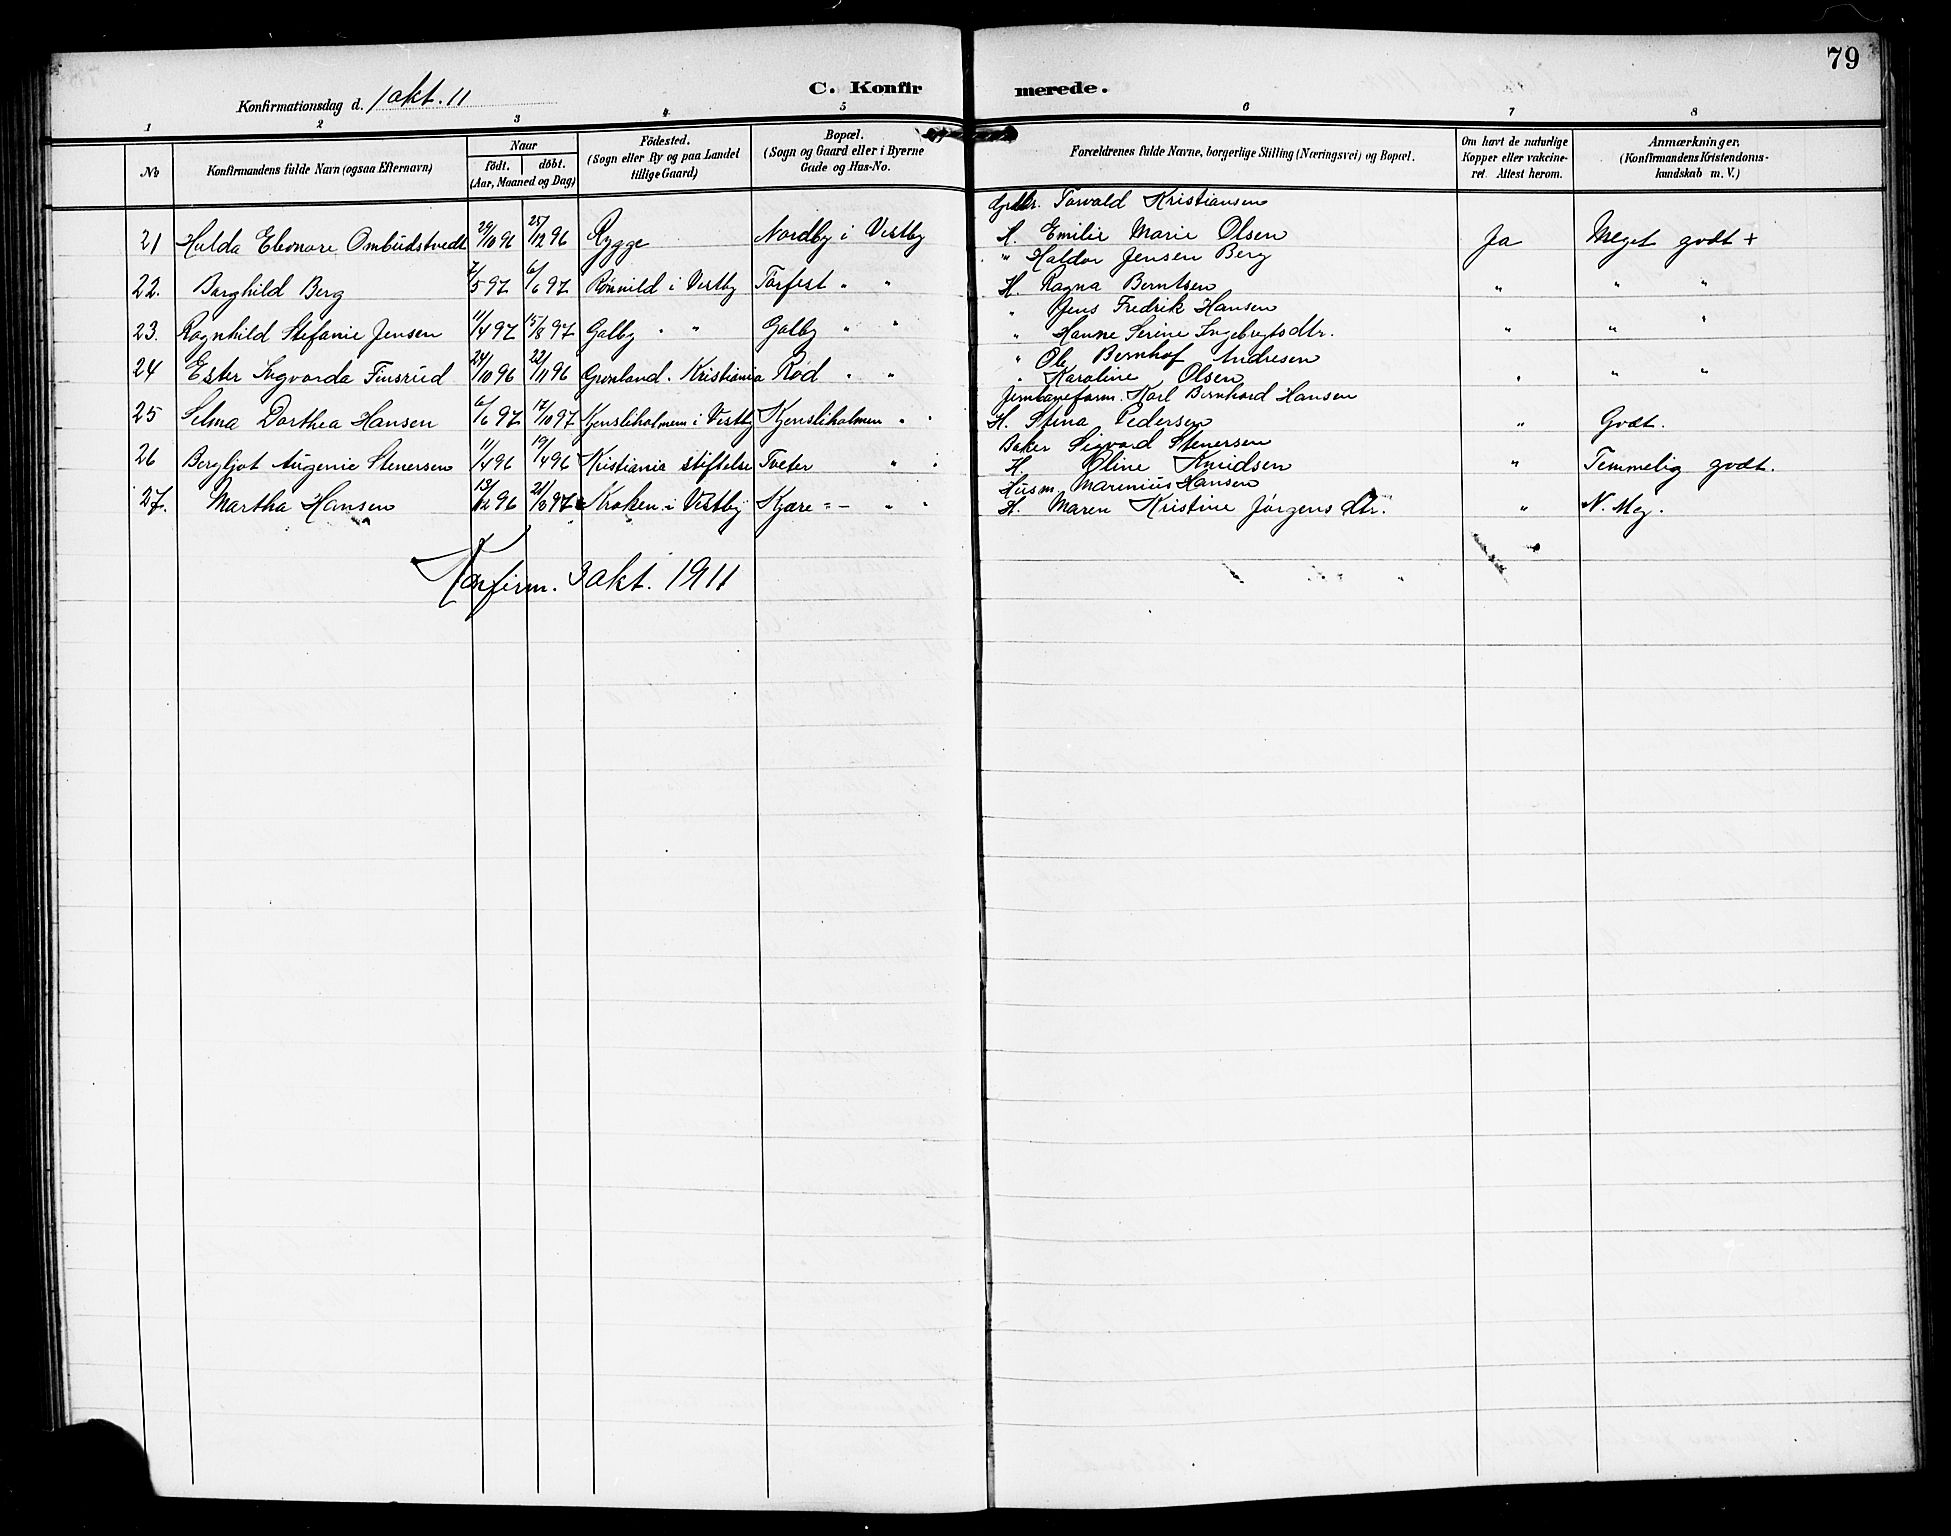 79
Konfirmationsdag d. 1 okt. 11
C. Konfirmerede.
1 2 3 4 5 6 7 8
No
Konfirmandens fulde Navn (ogsaa Efternavn)
Naar
födt. döbt.
(Aar, Maaned og Dag)
Födested.
(Sogn eller By og paa Landet
tillige Gaard)
Bopæl.
(Sogn og Gaard eller i Byerne
Gade og Hus-No.
Forældrenes fulde Navne, borgerlige Stilling (Næringsvei) og Bopæl.
Om havt de naturlige
Kopper eller vakcine-
ret. Attest herom.
Anmærkninger,
(Konfirmandens Kristendoms-
kundskab m. V.)
Grdbr. Torvald Kristiansen
21 Hulda Eleonore Ombudstvedt 29/10 96 25/12 96 Rygge Nordby i Vestby H. Emilie Marie Olsen Ja Meget godt +
" Haldor Jensen Berg
22. Borghild Berg 2/5 97 6/6 97 Rønnild i Vestby Torfest " " H. Ragna Berntsen " " "
" Jens Fredrik Hansen
23. Ragnhild Stefanie Jensen 11/4 97 15/8 97 Galby " " Galby " " " Hanne Serine Ingebrigtsdtr. " " "
" Ole Bernhof Andresen
24 Ester Ingvarda Finsrud 24/10 96 22/11 96 Grønland. Kristiania Rød " " " Karoline Olsen " " "
Jernbaneform. Karl Bernhard Hansen
25 Selma Dorthea Hansen 6/6 97 17/10 97 Kjensliholmen i Vestby Kjensliholmen " " H. Stina Pedersen " Godt.
Baker Sigvard Stenersen
26 Bergljot Augenie Stenersen 11/4 96 19/4 96 Kristiania stiftelse Tveter " " H. Oline Knudsen " Temmelig godt.
Husm. Marinius Hansen
27. Martha Hansen 13/12 96 Kroken i Vestby Kjære " " H. Maren Kristine Jørgensdtr. " N. Meg.
Konfirm. 3 okt. 1911